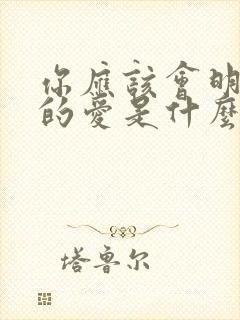 你應該會明
的愛是什麼
塔鲁尔